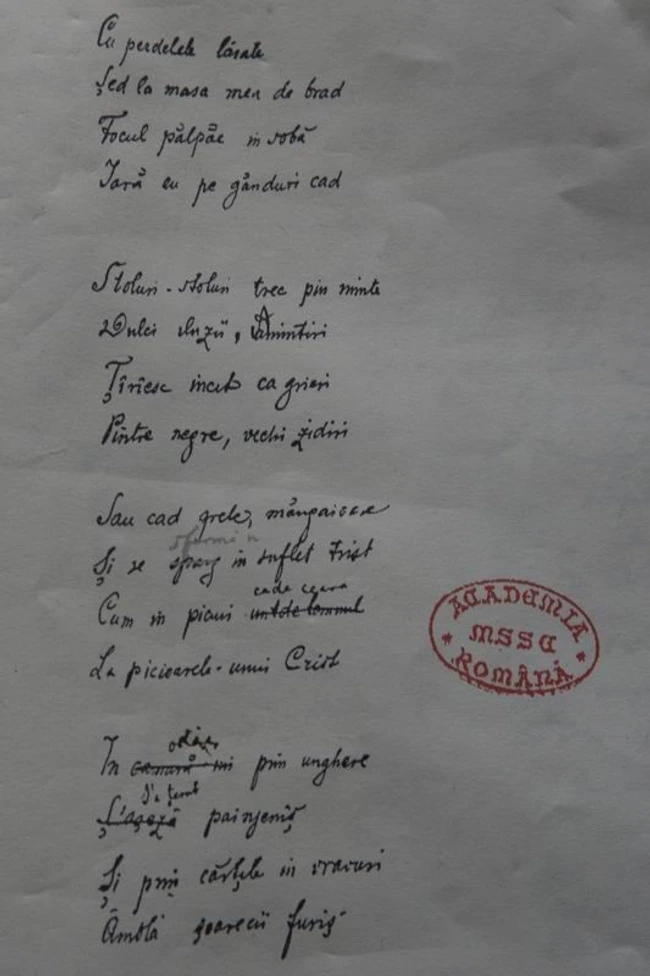 Cu perdelele lăsate
Șed la masa mea de brad
Focul pălpăe in sobă
Iară eu pe gănduri cad
Stoluri-stoluri trec pin minte
Dulci iluzii, Amintiri
Țîrîesc incet ca grieri
Pintre negre, vechi zidiri
Sau cad grele, măngaioase
sfarmă
Și se sparg in suflet trist
cade ceara
Cum in picuri
La picioarele-unui Crist
odae
In camară-mi prin unghere
S'a țesut
S'așeză painjeniș
Și prin cărțile in vravuri
Ămblă șoarecii furiș
ACADEMIA
MSSE
ROMÂNĂ